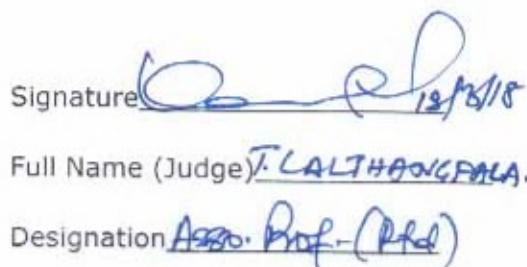 Signature
Full Name (Judge) T. LALTHANGFALA.
Designation Asso. Prof. (Rtd)